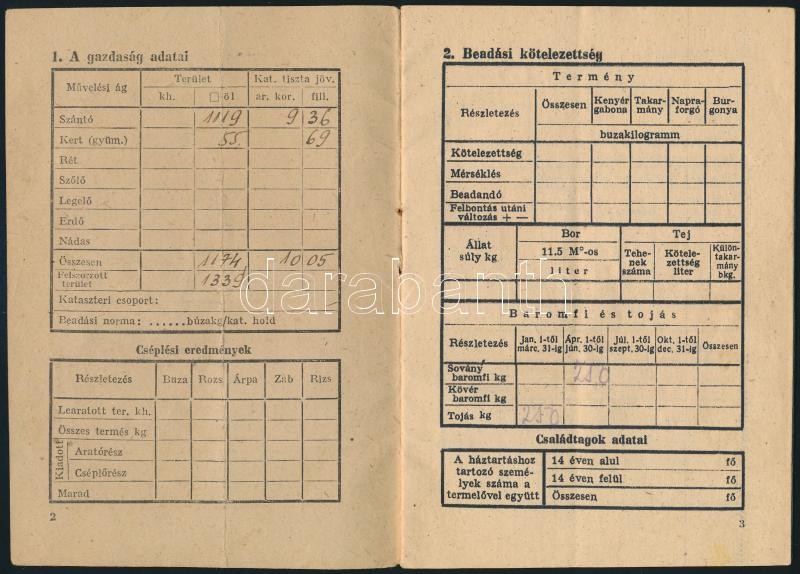 1. A gazdaság adatai
Művelési ág
Terület
Kat. tiszta jöv.
kh.
□-öl
ar. kor.
fill.
Szántó 1119 9 36
Kert (gyüm.) 55 69
Rét
Szőlő
Legelő
Erdő
Nádas
Összesen 1174 10 05
Felszorzott
terület 1339
Kataszteri csoport:
Beadási norma: ......búzakg/kat. hold
Cséplési eredmények
Részletezés Búza Rozs Árpa Zab Rizs
Learatott ter. kh.
Összes termés kg
Kiadott
Aratórész
Cséplőrész
Marad
2
2. Beadási kötelezettség
Termény
Részletezés
Összesen
Kenyér
gabona
Takar-
mány
Napra-
forgó
Bur-
gonya
buzakilogramm
Kötelezettség
Mérséklés
Beadandó
Felbontás utáni
változás + —
Állat
súly kg
Bor
11.5 M°-os
liter
Tej
Tehe-
nek
száma
Kötele-
zettség
liter
Külön-
takar-
mány
bkg.
Baromfi és tojás
Részletezés
Jan. 1-től
márc. 31-ig
Ápr. 1-től
jún. 30-ig
Júl. 1-től
szept. 30-ig
Okt. 1-től
dec. 31-ig
Összesen
Sovány
baromfi kg 250
Kövér
baromfi kg
Tojás kg 250
Családtagok adatai
A háztartáshoz
tartozó szemé-
lyek száma a
termelővel együtt
14 éven alul fő
14 éven felül fő
Összesen fő
3
darabanth